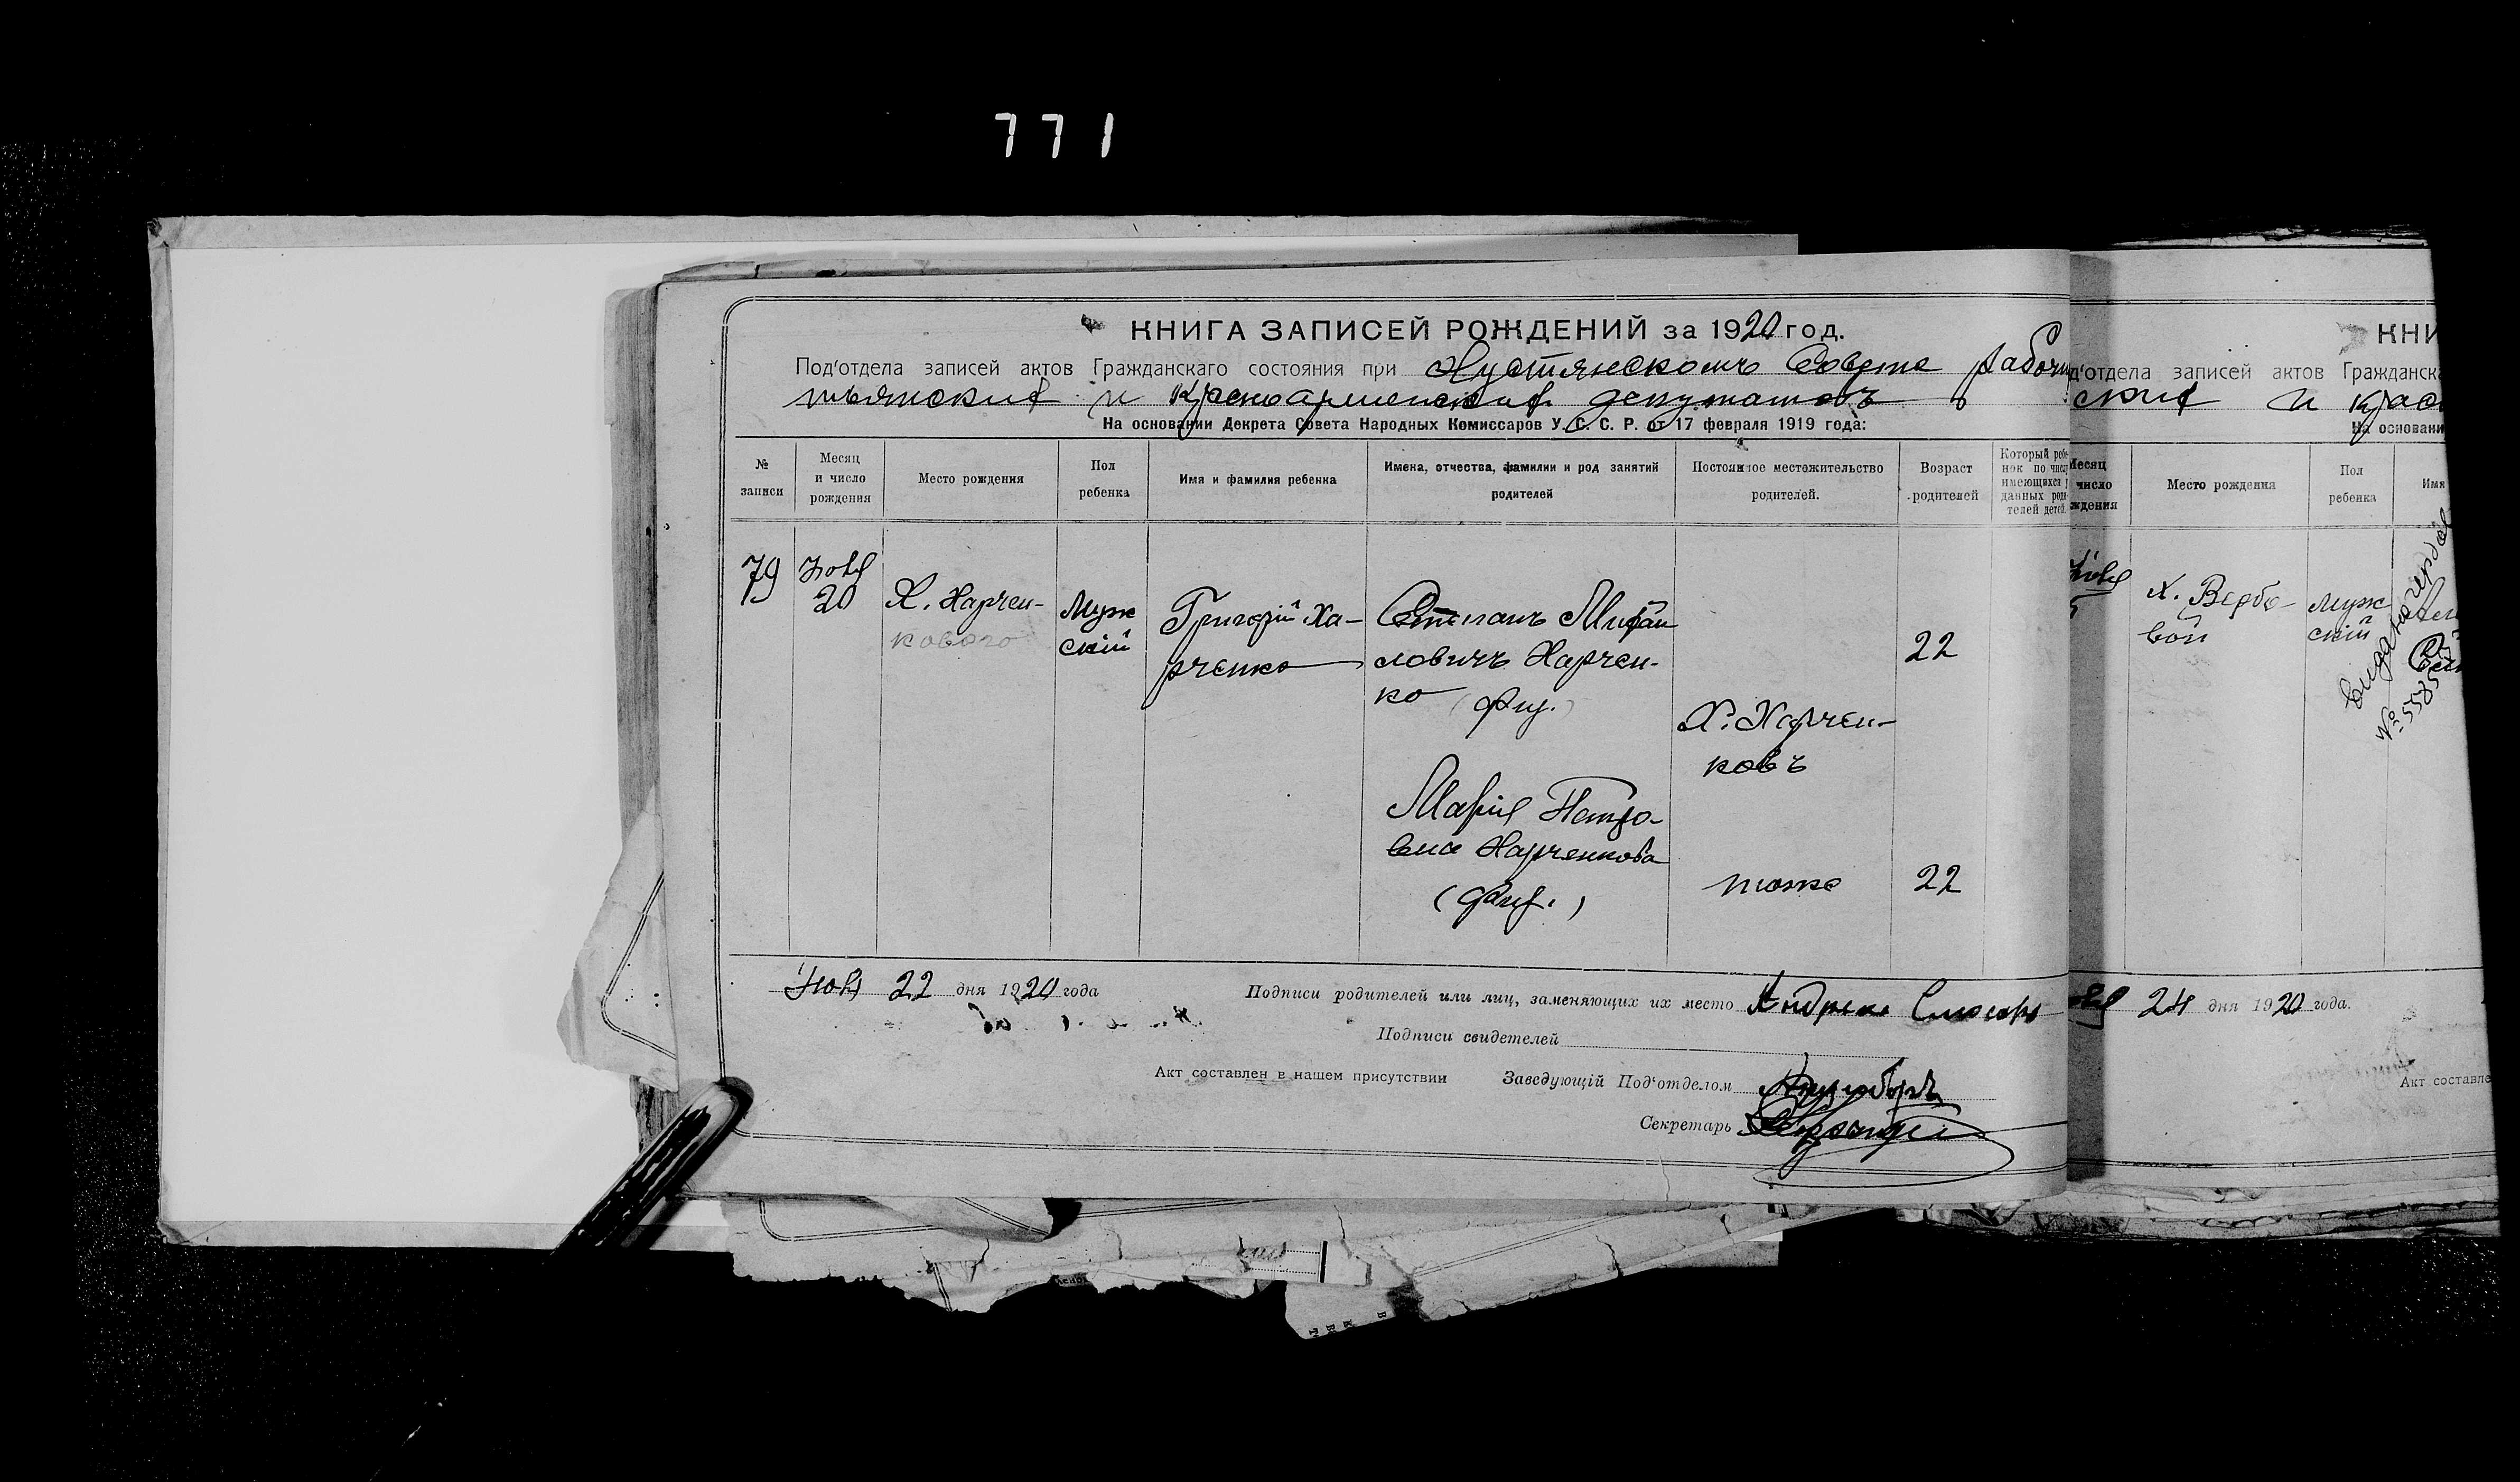 771
КНИГА ЗАПИСЕЙ РОЖДЕНИЙ за 1920 год.
Под'отдела записей актов Гражданскаго состояния при Хустянскомъ Совете Рабочи
тьянских и Красноармейских депутатовъ
На основании Декрета Совета Народных Комиссаров У. С. С. Р. от 17 февраля 1919 года:
№ записи
Месяц и число рождения
Место рождения
Пол ребенка
Имя и фамилия ребенка
Имена, отчества, фамилии и род занятий родителей
Постоянное местожительство родителей.
Возраст родителей
Который ребенок по числу имеющихся у данных родителей детей.
79
Ноя
20
Х. Харчен-
кового
Муж
ской
Григорій Ха-
рченко
Степанъ Михай
ловичъ Харчен-
ко
22
Х. Харчен-
ковъ
Марія Петро-
вна Харченкова
тоже
22
Ноя 22 дня 1920 года
Подписи родителей или лиц, заменяющих их место Андрей Слюсарь
Подписи свидетелей
Акт составлен в нашем присутствии Заведующій Под'отделом
Секретарь
КНИ
д'отдела записей актов Гражданска
ских и Крас
На основани
Месяц
число
ждения
Место рождения
Пол
ребенка
Имя
Х. Вербо-
вой
Муж
ской
№ 5585
24 дня 1920 года.
Акт составле